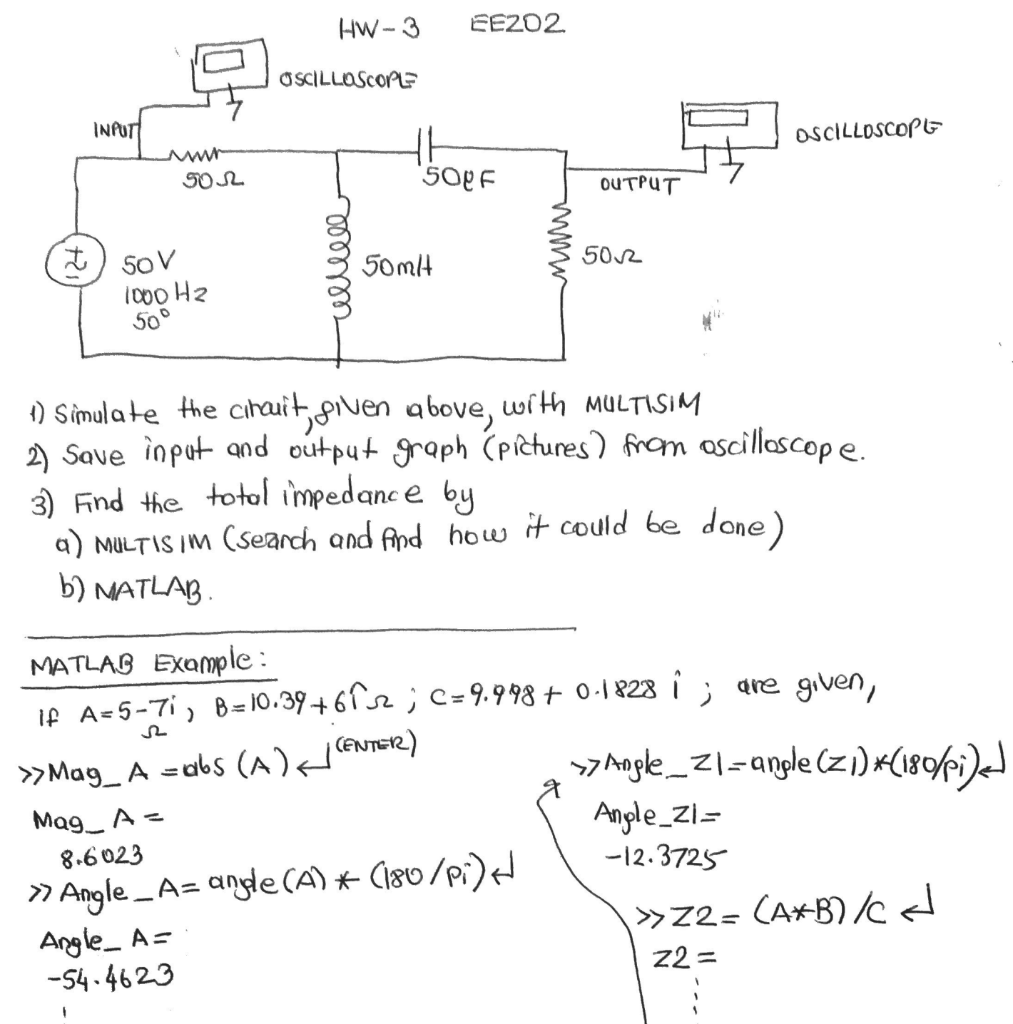 HW-3 EE202
OSCILLOSCOPE
INPUT
OSCILLOSCOPE
50Ω
50pF
OUTPUT
50V
1000 Hz
50°
50mH
50Ω
1) Simulate the circuit, given above, with MULTISIM
2) Save input and output graph (pictures) from oscilloscope.
3) Find the total impedance by
a) MULTISIM (search and find how it could be done)
b) MATLAB.
MATLAB Example:
If A=5-7i, B=10.39+6i Ω ; C=9.998+0.1828 i ; are given,
Ω
>>Mag_A =abs (A)↵ (ENTER)
Mag_A =
8.6023
>> Angle_A= angle(A) * (180/pi)↵
Angle_A=
-54.4623
>>Angle_Z1=angle(Z1)*(180/pi)↵
Angle_Z1=
-12.3725
>>Z2= (A*B)/C ↵
Z2=